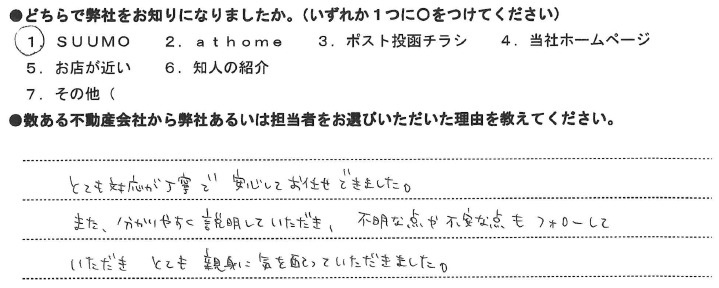 ●どちらで弊社をお知りになりましたか。(いずれか１つに〇をつけてください)
１．ＳＵＵＭＯ　２．ａｔｈｏｍｅ　３．ポスト投函チラシ　４．当社ホームページ
５．お店が近い　６．知人の紹介
７．その他（
●数ある不動産会社から弊社あるいは担当者をお選びいただいた理由を教えてください。
とても対応が丁寧で 安心してお任せできました。
また、分かりやすく説明していただき、不明な点や不安な点もフォローして
いただき とても親身に気を配っていただきました。